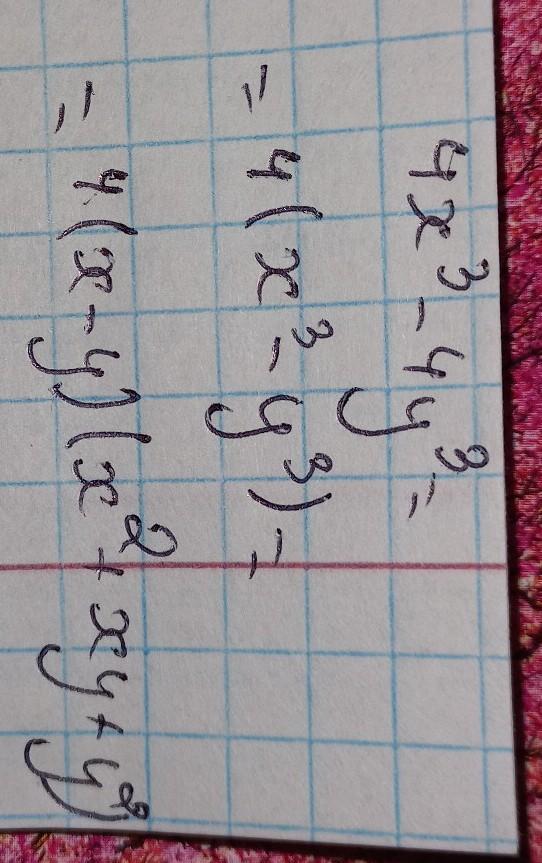 4x³ - 4y³ =
= 4(x³ - y³) =
= 4(x - y)(x² + xy + y²)